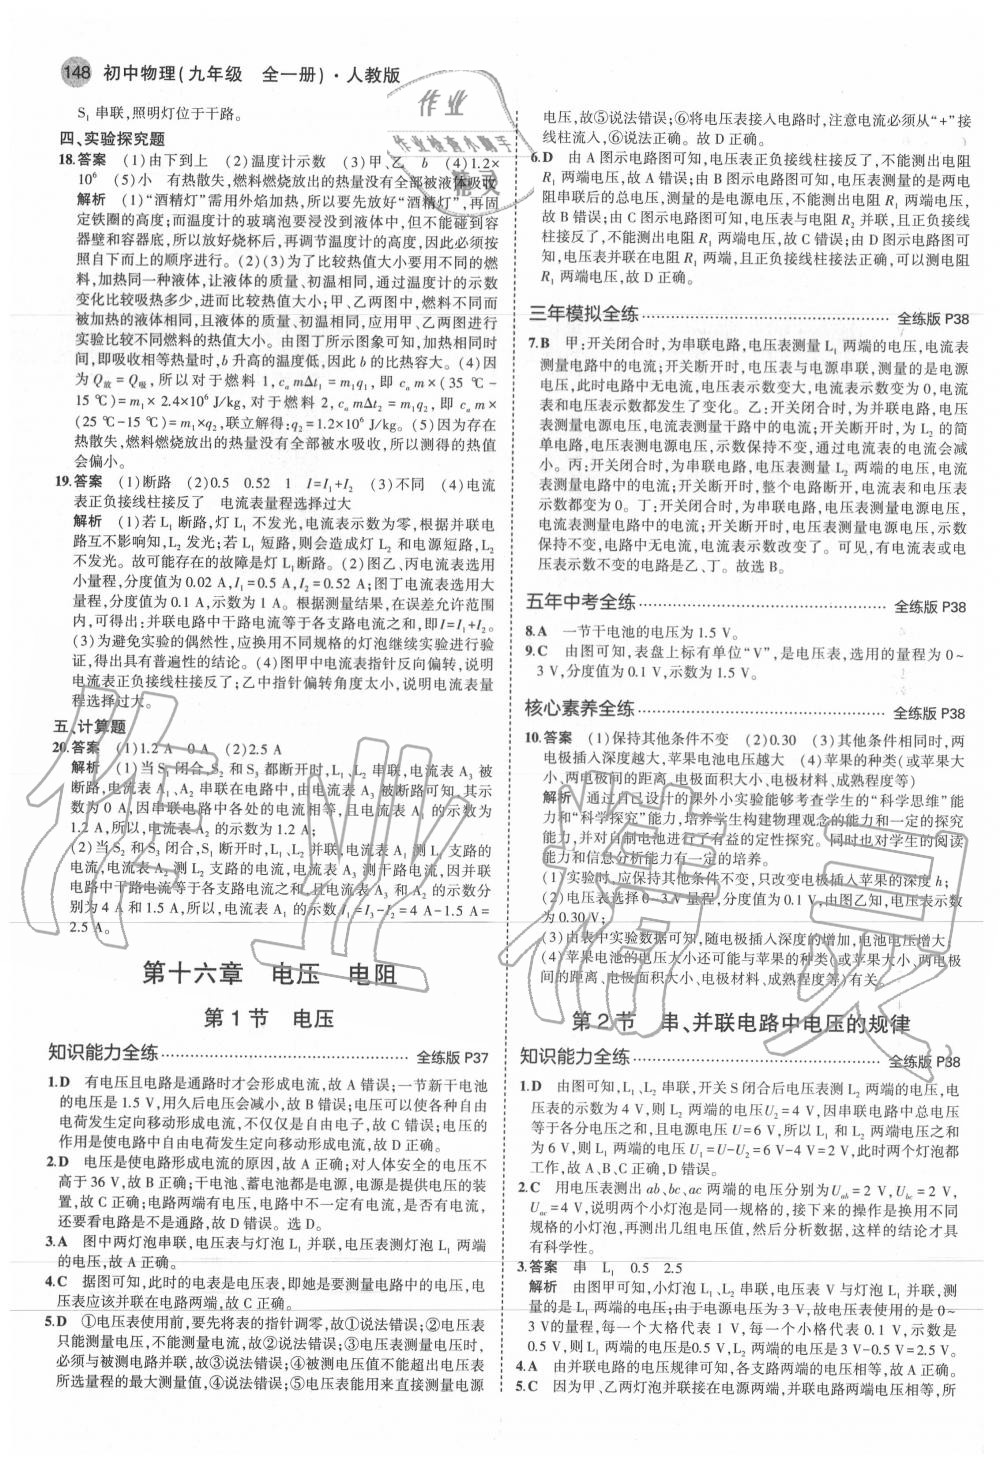 148 初中物理(九年级 全一册)·人教版
S₁ 串联,照明灯位于干路。
四、实验探究题
18.答案 (1)由下到上 (2)温度计示数 (3)甲、乙 b (4)1.2×
10⁶ (5)小 有热散失,燃料燃烧放出的热量没有全部被液体吸收
解析 (1)“酒精灯”需用外焰加热,所以要先放好“酒精灯”,再固
定铁圈的高度;而温度计的玻璃泡要浸没到液体中,但不能碰到容
器壁和容器底,所以放好烧杯后,再调节温度计的高度,因此必须按
照自下而上的顺序进行。(2)(3)为了比较热值大小要用不同的燃
料,加热同一种液体,让液体的质量、初温相同,通过温度计的示数
变化比较吸热多少,进而比较热值大小;甲、乙两图中,燃料不同而
被加热的液体相同,且液体的质量、初温相同,应用甲、乙两图进行
实验比较不同燃料的热值。由图丁所示图象可知,加热相同时
间,即吸收相等热量时,b 升高的温度低,因此 b 的比热容大。(4)因
为 Q放=Q吸,所以对于燃料 1,c水mΔt₁=m₁q₁,即 c水m×(35 ℃-
15 ℃)=m₁×2.4×10⁶ J/kg,对于燃料 2,c水mΔt₂=m₁q₂,即 c水m×
(25 ℃-15 ℃)=m₁×q₂,联立解得:q₂=1.2×10⁶ J/kg。(5)因为存在
热散失,燃料燃烧放出的热量没有全部被水吸收,所以测得的热值
会偏小。
19.答案 (1)断路 (2)0.5 0.52 1 I=I₁+I₂ (3)不同 (4)电流
表正负接线柱接反了 电流表量程选择过大
解析 (1)若 L₁ 断路,灯 L₁ 不发光,电流表示数为零,根据并联电
路互不影响知,L₂ 发光;若 L₁ 短路,则会造成灯 L₂ 和电源短路,L₂
不发光。故可能存在的故障是灯 L₁断路。(2)图乙电流表选用
小量程,分度值为 0.02 A,I₁=0.5 A,I₂=0.52 A;图丁电流表选用大
量程,分度值为 0.1 A,示数为 1 A。根据测量结果,在误差允许范围
内,可得出:并联电路中干路电流等于各支路电流之和,即I=I₁+I₂。
(3)为避免实验的偶然性,应换用不同规格的灯泡继续实验进行验
证,得出具有普遍性的结论。(4)图甲中电流表指针反向偏转,说明
电流表正负接线柱接反了;乙中指针偏转角度太小,说明电流表量
程选择过大。
五、计算题
20.答案 (1)1.2 A 0 A (2)2.5 A
解析 (1)当 S₁闭合,S₂ 和 S₃ 都断开时,L₁、L₂ 串联,电流表 A₃ 被
断路,电流表 A₁、A₂ 串联在电路中,由电流表 A₃ 被断路可知,其示
数为 0 A,因串联电路中各处的电流相等,且电流表 A₁ 的示数为
1.2 A,所以,电流表 A₂ 的示数为 1.2 A;
(2)当 S₂ 和 S₃ 闭合,S₁ 断开时,L₁、L₂ 并联,电流表 A₁ 测 L₁ 支路的
电流,电流表 A₂ 测 L₂ 支路的电流,电流表 A₃ 测干路电流,因并联
电路中干路电流等于各支路电流之和,且电流表 A₃ 和 A₂ 的示数分
别为 4 A和 1.5 A,所以,电流表 A₁ 的示数 I₁=I₃-I₂=4 A-1.5 A=
2.5 A。
第十六章 电压 电阻
第 1 节 电压
知识能力全练 全练版 P37
1.D 有电压且电路是通路时才会形成电流,故 A 错误;一节新干电池
的电压是 1.5 V,用久后电压会减小,故 B 错误;电压可以使各种自由
电荷发生定向移动形成电流,不仅仅是自由电子,故 C 错误;电压的
作用是使电路中自由电荷发生定向移动形成电流,故 D 正确。
2.D 电压是使电路形成电流的原因,故 A 正确;对人体安全的电压不
高于 36 V,故 B 正确;干电池、蓄电池都是电源,电源是提供电压的装
置,故 C 正确;电路两端有电压,电路中不一定有电流,是否有电流,
还要看电路是不是通路,故 D 错误。选 D。
3.A 图中两灯泡串联,电压表与灯泡 L₁ 并联,电压表测灯泡 L₁ 两端
的电压,故 A 正确。
4.C 据图可知,此时的电表是电压表,即她是要测量电路中的电压,电
压表应该并联在电路两端,故 C 正确。
5.D ①电压表使用前,要先将表的指针调零,故①说法错误;②电压表
只能测量电压,不能测量电流,故②说法错误;③电压表测量电压时,
必须与被测电路并联,故③说法错误;④被测电压值不能超出电压表
所选量程的最大测量值,④说法错误;⑤电压表能用来直接测量电源
电压,故⑤说法错误;⑥将电压表接入电路时,注意电流必须从“+”接
线柱流入,⑥说法正确。故 D 正确。
6.D 由 A 图示电路图可知,电压表正负接线柱接反了,不能测出电阻
R₁ 两端电压,故 A 错误;由 B 图示电路图可知,电压表测量的是两电
阻串联后的总电压,测量的是电源电压,不能测出电阻 R₁ 两端电压,
故 B 错误;由 C 图示电路图可知,电压表与电阻 R₂ 并联,且正负接线
柱接反了,不能测出电阻 R₁ 两端电压,故 C 错误;由 D 图示电路图可
知,电压表并联在电阻 R₁ 两端,且正负接线柱接法正确,可以测电阻
R₁ 两端电压,故 D 正确。
三年模拟全练 全练版 P38
7.B 甲:开关闭合时,为串联电路,电压表测量 L₁ 两端的电压,电流表
测量电路中的电流;开关断开时,电压表与电源串联,测量的是电源
电压,此时电路中无电流,电压表示数变大,电流表示数变为 0,电流
表和电压表示数都发生了变化。乙:开关闭合时,为并联电路,电压
表测量电源电压,电流表测量干路中的电流;开关断开时,为 L₂ 的简
单电路,电压表测电源电压,示数保持不变,通过电流表的电流会减
小。丙:开关闭合时,为串联电路,电压表测量 L₂ 两端的电压,电流
表测量电路中的电流;开关断开时,整个电路断开,电流表和电压表
示数都变为 0。丁:开关闭合时,为串联电路,电压表测量电源电压,
电流表测量电路中的电流;开关断开时,电压表测量电源电压,示数
保持不变,电路中无电流,电流表示数改变了。可见,有电流表或电
压表示数不变的电路是乙、丁。故选 B。
五年中考全练 全练版 P38
8.A 一节干电池的电压为 1.5 V。
9.C 由图可知,表盘上标有单位“V”,是电压表,选用的量程为 0~
3 V,分度值为 0.1 V,示数为 1.5 V。
核心素养全练 全练版 P38
10.答案 (1)保持其他条件不变 (2)0.30 (3)其他条件相同时,两
电极插入深度越大,苹果电池电压越大 (4)苹果的种类(或苹果大
小、两电极间的距离、电极面积大小、电极材料、成熟程度等)
解析 通过自己设计的课外小实验能够考查学生的“科学思维”能
力和“科学探究”能力,培养学生构建物理观念的能力和一定的探究
能力,并对自制电池进行了有益的定性探究。同时也对学生的阅读
能力和信息分析能力有一定的培养。
(1)实验时,应保持其他条件不变,只改变电极插入苹果的深度 h;
(2)电压表选择 0~3 V 量程,分度值为 0.1 V,由图乙知,电压表示数
为 0.30 V;
(3)由表中实验数据可知,随电极插入深度的增加,电池电压增大;
(4)苹果电池的电压大小还可能与苹果的种类(或苹果大小、两电极
间的距离、电极面积大小、电极材料、成熟程度等)有关。
第 2 节 串、并联电路中电压的规律
知识能力全练 全练版 P38
1.D 由图可知,L₁、L₂ 串联,开关 S 闭合后电压表测 L₂ 两端的电压,电
压表的示数为 4 V,则 L₂ 两端的电压U₂=4 V,因串联电路中总电压
等于各分电压之和,且电源电压 U=6 V,所以 L₁ 和 L₂ 两端电压之和
为 6 V,则 L₁ 两端的电压 U₁=U-U₂=6 V-4 V=2 V,此时两个灯泡都
工作,故 A、B、C 正确,D 错误。
2.C 用电压表测出 ab、bc、ac 两端的电压分别为Uab=2 V,Ubc=2 V,
Uac=4 V,说明两个小灯泡是同一规格的,接下来的操作是换用不同
规格的小灯泡,再测出几组电压值,然后分析数据,这样的结论才具
有科学性。
3.答案 串 L₁ 0.5 2.5
解析 由图甲可知,小灯泡 L₁、L₂ 串联,电压表 V 与灯泡 L₁ 并联,测
量的是 L₁ 两端的电压;由于电源电压为 3 V,故电压表使用的是 0~
3 V的量程,每一个大格代表 1 V,每一个小格代表 0.1 V,示数是
0.5 V,则L₁ 两端的电压是0.5 V,L₂ 两端的电压是 3 V-0.5 V=2.5 V。
4.A 由并联电路的电压规律可知,各支路两端的电压相等,故 A 正确。
5.C 因为甲、乙两灯泡并联接在电源两端,并联电路两端电压相等,所
作业
作业检查小助手
精灵
作业精灵